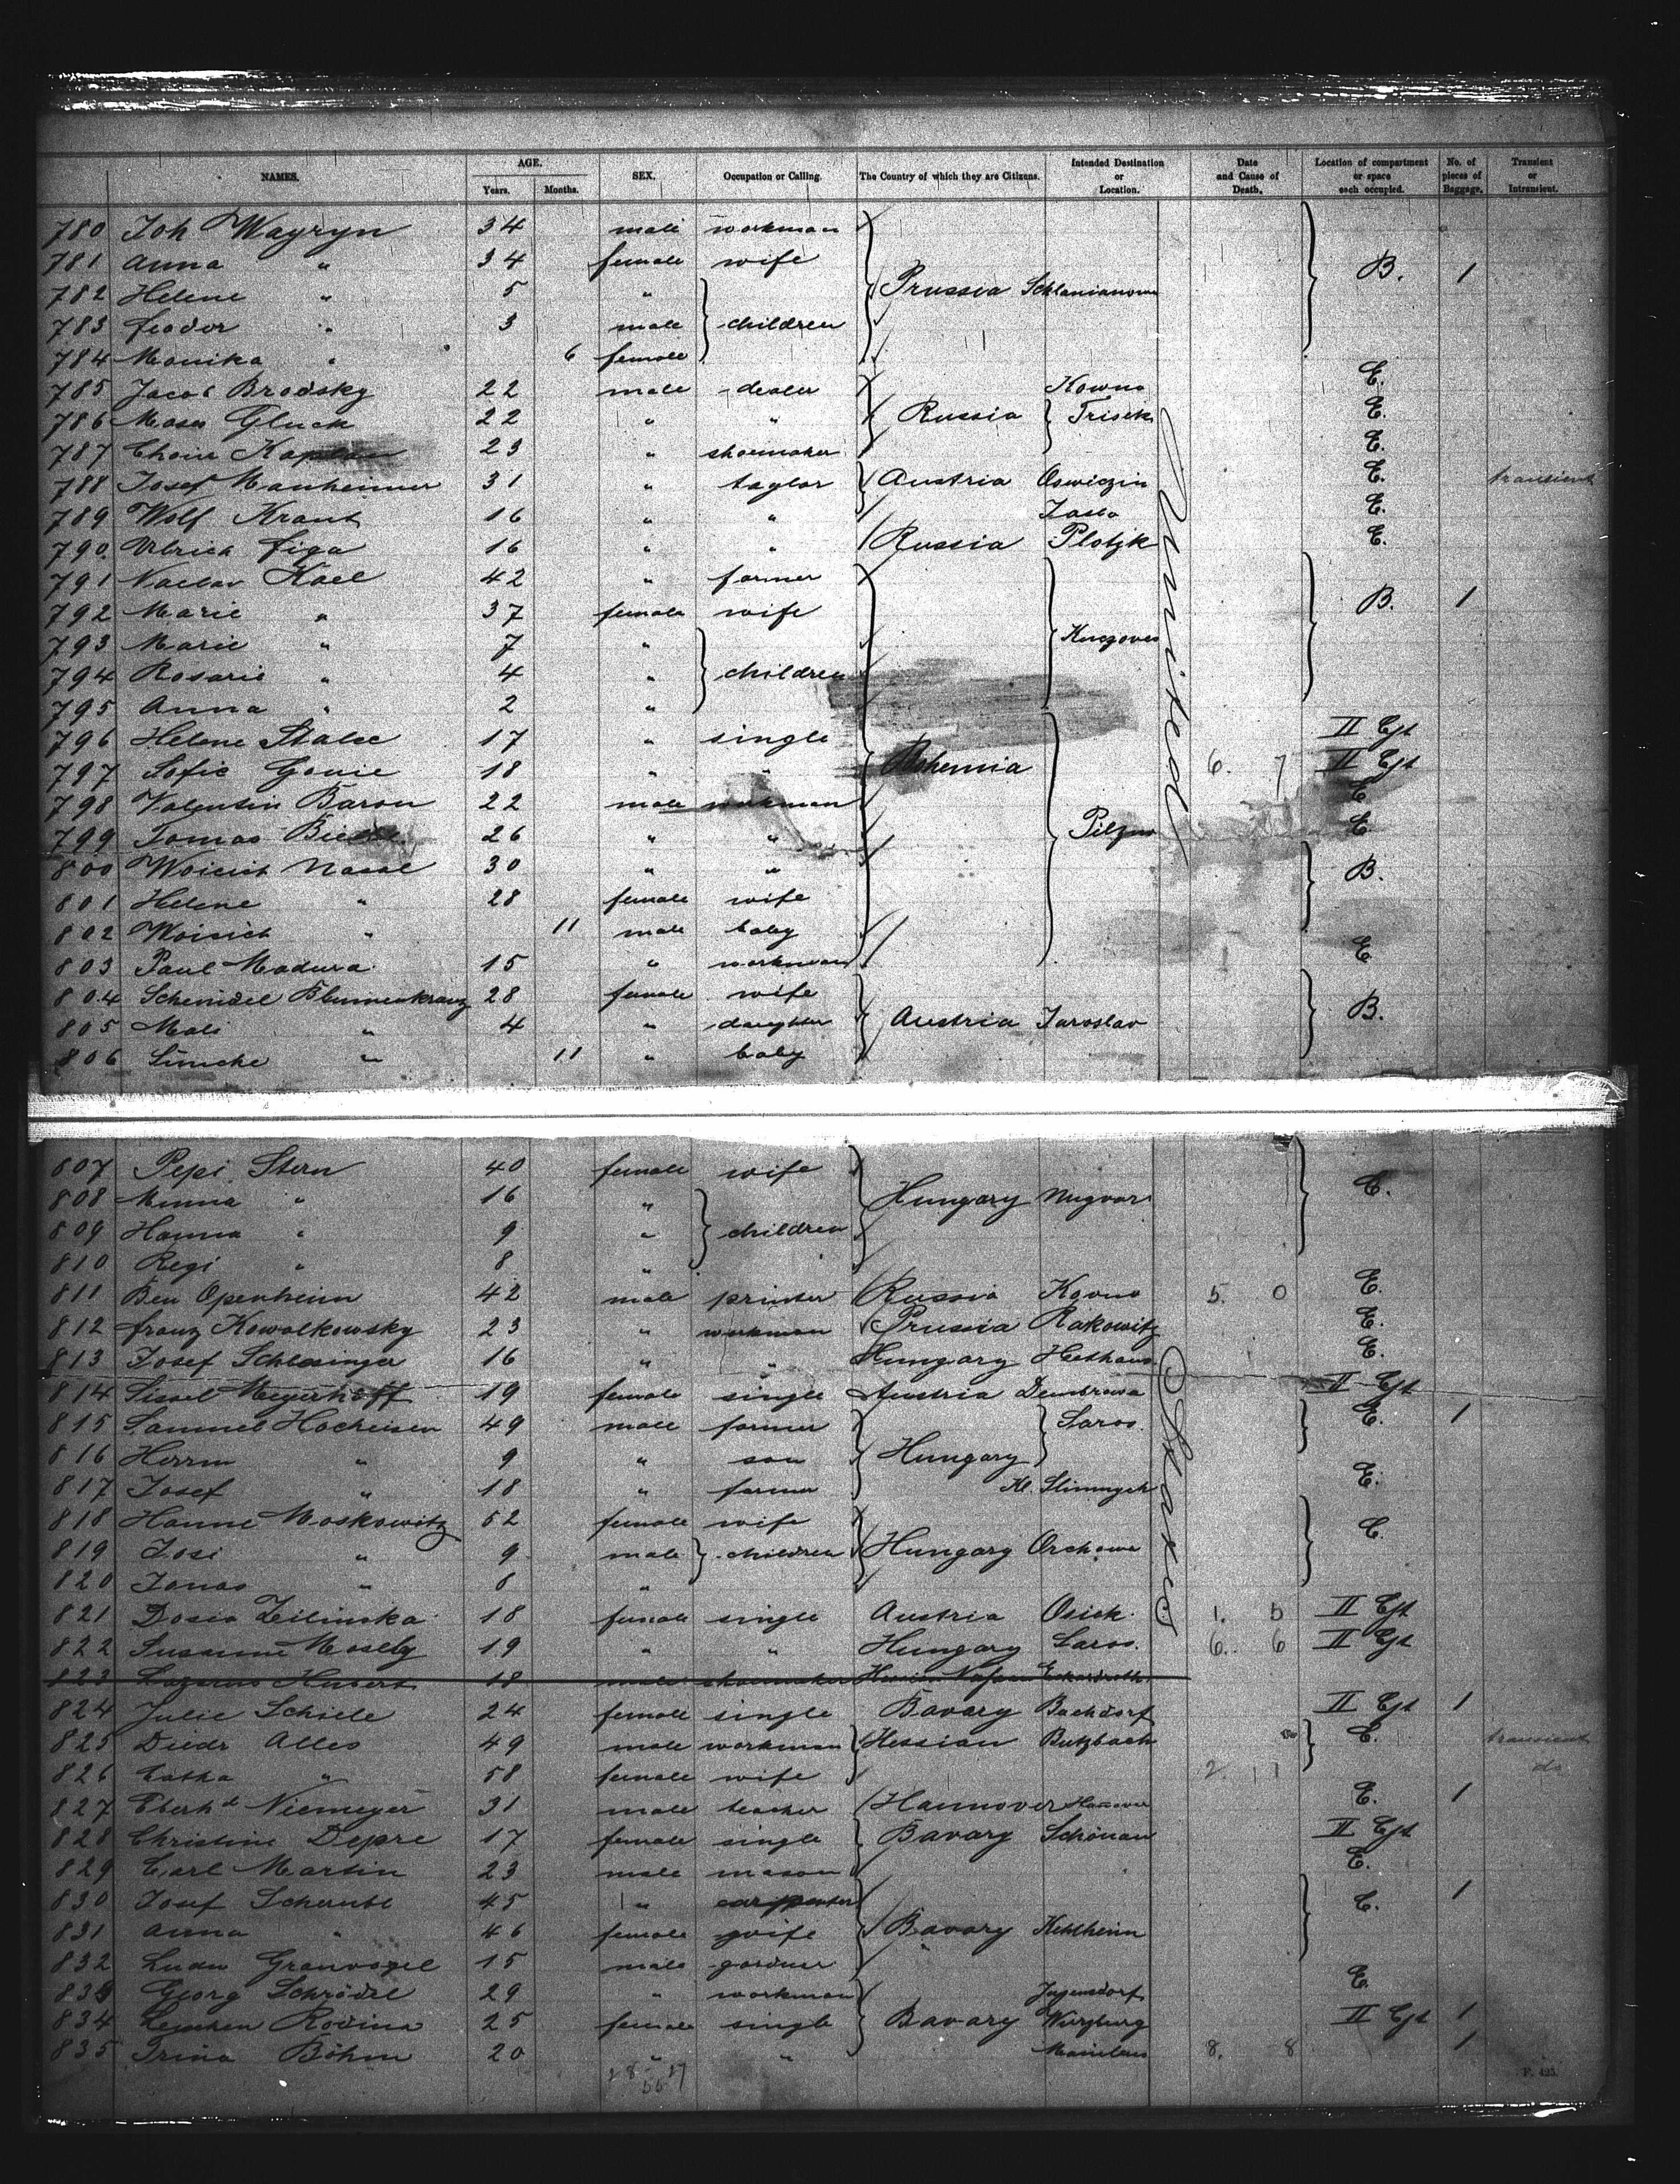 NAMES. AGE. Years. Months. SEX. Occupation or Calling. The Country of which they are Citizens. Intended Destination or Location. Date and Cause of Death. Location of compartment or space each occupied. No. of pieces of Baggage. Transient or Intransient.
780 Joh Wagryn 34 male workman
781 Anna " 34 female wife B. 1
782 Helene " 5 " Prussia
783 Feodor " 3 male children
784 Monika " 6 female
785 Jacob Brodsky 22 male dealer Kowno E.
786 Moses Gluck 22 " " Russia Trisek E.
787 Chone Kaplan 23 " shoemaker E.
788 Josef Manheimer 31 " taylor Austria Oswiczin E. transient
789 Wolf Kraut 16 " " Jaslo E.
790 Ulrich Figa 16 " " Russia Plotzk E.
791 Vaclav Kael 42 " farmer
792 Marie " 37 female wife B. 1
793 Marie " 7 "
794 Rosarie " 4 " children
795 Anna " 2 "
796 Helene Stalec 17 " single II Cjt
797 Sofie Gonie 18 " " Bohemia 6. 7 II Cjt
798 Valentin Baron 22 male workman E
799 Tomas 26 " " Pilzno E
800 Woicich Nasal 30 " " B.
801 Helene " 28 female wife
802 Woicich " 11 male baby
803 Paul Madura 15 " workman E
804 Scheindel Blumenkranz 28 female wife
805 Mali " 4 " daughter Austria Jaroslav B.
806 Simche " 11 " baby
United
807 Pepi Stern 40 female wife
808 Minna " 16 " Hungary Nugvar E.
809 Hanna " 9 " children
810 Regi " 8 "
811 Ben Openheim 42 male printer Russia Kovno 5. 0 E.
812 Franz Kowalkowsky 23 " workman Prussia Rakowitz E.
813 Josef Schlesinger 16 " " Hungary E.
814 Sissel Meyerhoff 19 female single Austria Dembrowa II Cjt
815 Samuel Hocheisen 49 male farmer Saros E. 1
816 Herrm " 9 " son Hungary
817 Josef " 18 " farmer Kl. E.
818 Hanne Moskowitz 52 female wife E.
819 Josi " 9 male children Hungary Orchowe
820 Jonas " 8 "
821 Dosia Zeilinska 18 female single Austria Osiek 1. 5 II Cjt
822 Susanne Mosely 19 " " Hungary Saros. 6. 6 II Cjt
823 Lazarus Hubert 18 male shoemaker
824 Julie Schiele 24 female single Bavary Bachdorf II Cjt 1
825 Diedr Alles 49 male workman Hessian Butzbach E. transient
826 Catha " 58 female wife 2. 1 do
827 Eberhd Niemeyer 31 male teacher Hannover Hannover E. 1
828 Christine Depre 17 female single Bavary Schönau II Cjt
829 Carl Martin 23 male mason E.
830 Josef Scherubl 45 " carpenter E. 1
831 Anna " 46 female wife Bavary Kehlheim
832 Ludw Granvogel 15 male gardner
833 Georg Schrödel 29 " workman E.
834 Lenchen Rodina 25 female single Bavary Wurzburg II Cjt 1
835 Trina Böhm 20 " " 8. 8 1
States